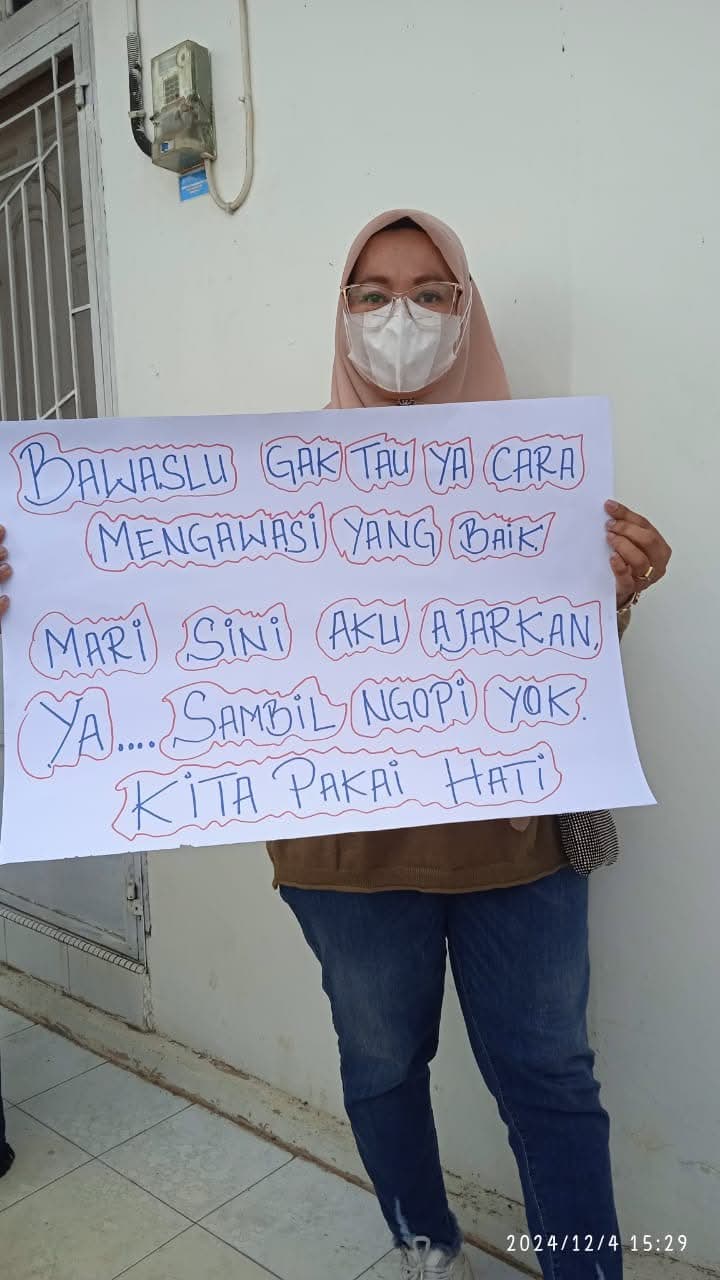 BAWASLU GAK TAU YA CARA
MENGAWASI YANG BAIK
MARI SINI AKU AJARKAN,
YA.... SAMBIL NGOPI YOK.
KITA PAKAI HATI
2024/12/4 15:29